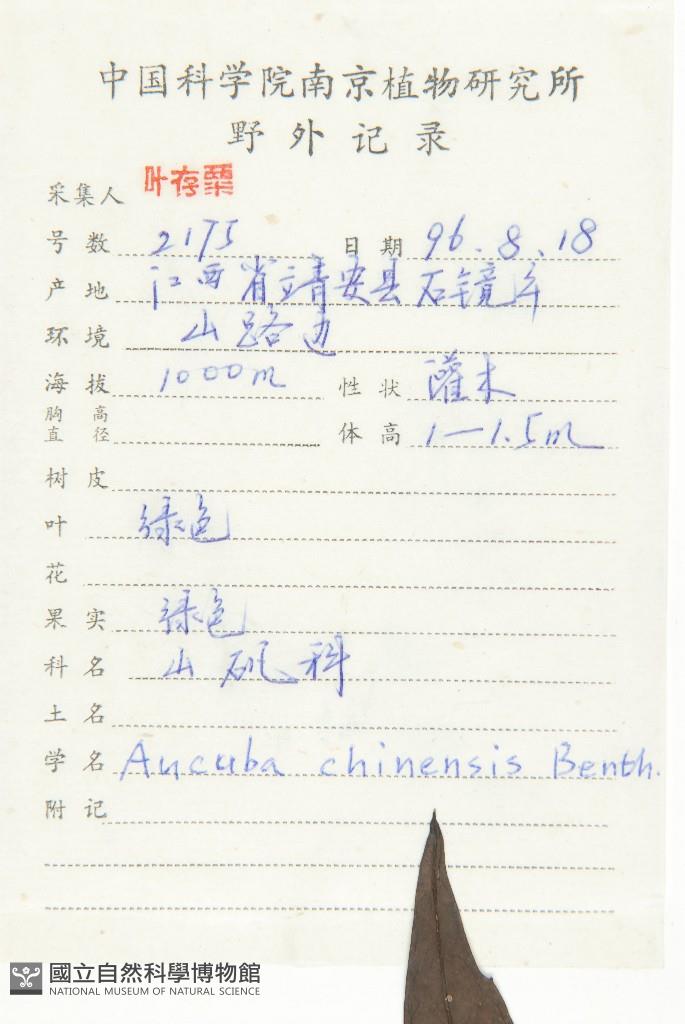 中国科学院南京植物研究所
野外记录
采集人 叶存粟
号数 2175 日期 96.8.18
产地 江西省靖安县石镜
环境 山路边
海拔 1000m 性状 灌木
胸高
直径 体高 1—1.5m
树皮
叶 绿色
花
果实 绿色
科名 山矾科
土名
学名 Aucuba chinensis Benth.
附记
國立自然科學博物館
NATIONAL MUSEUM OF NATURAL SCIENCE